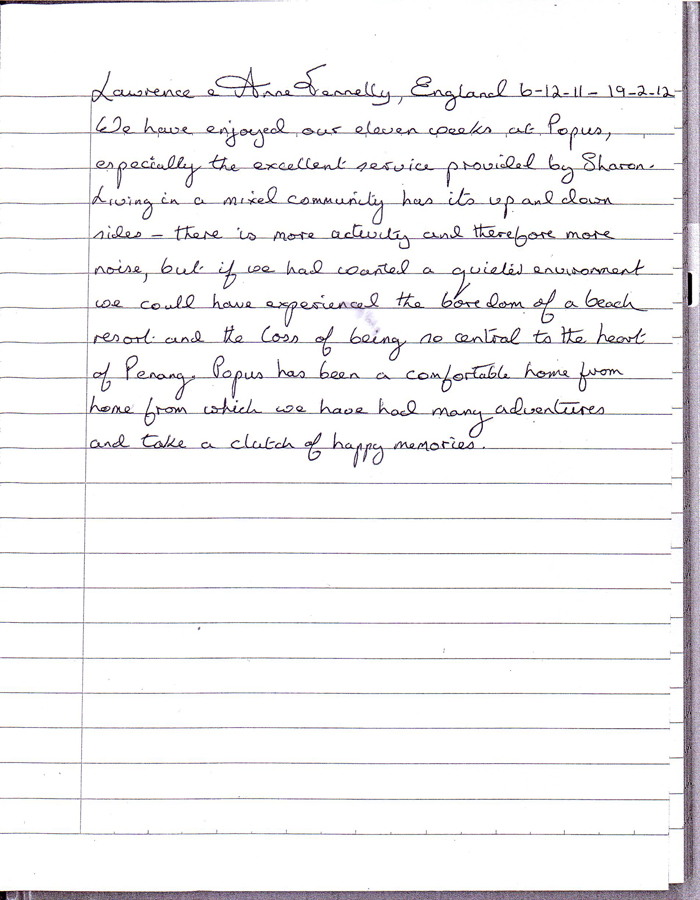 Lawrence & Anne Fennelly, England 6-12-11 - 19-2-12
We have enjoyed our eleven weeks at Popus,
especially the excellent service provided by Sharon.
Living in a mixed community has its up and down
sides - there is more activity and therefore more
noise, but if we had wanted a quieter environment
we could have experienced the boredom of a beach
resort and the loss of being so central to the heart
of Penang. Popus has been a comfortable home from
home from which we have had many adventures
and take a clutch of happy memories.